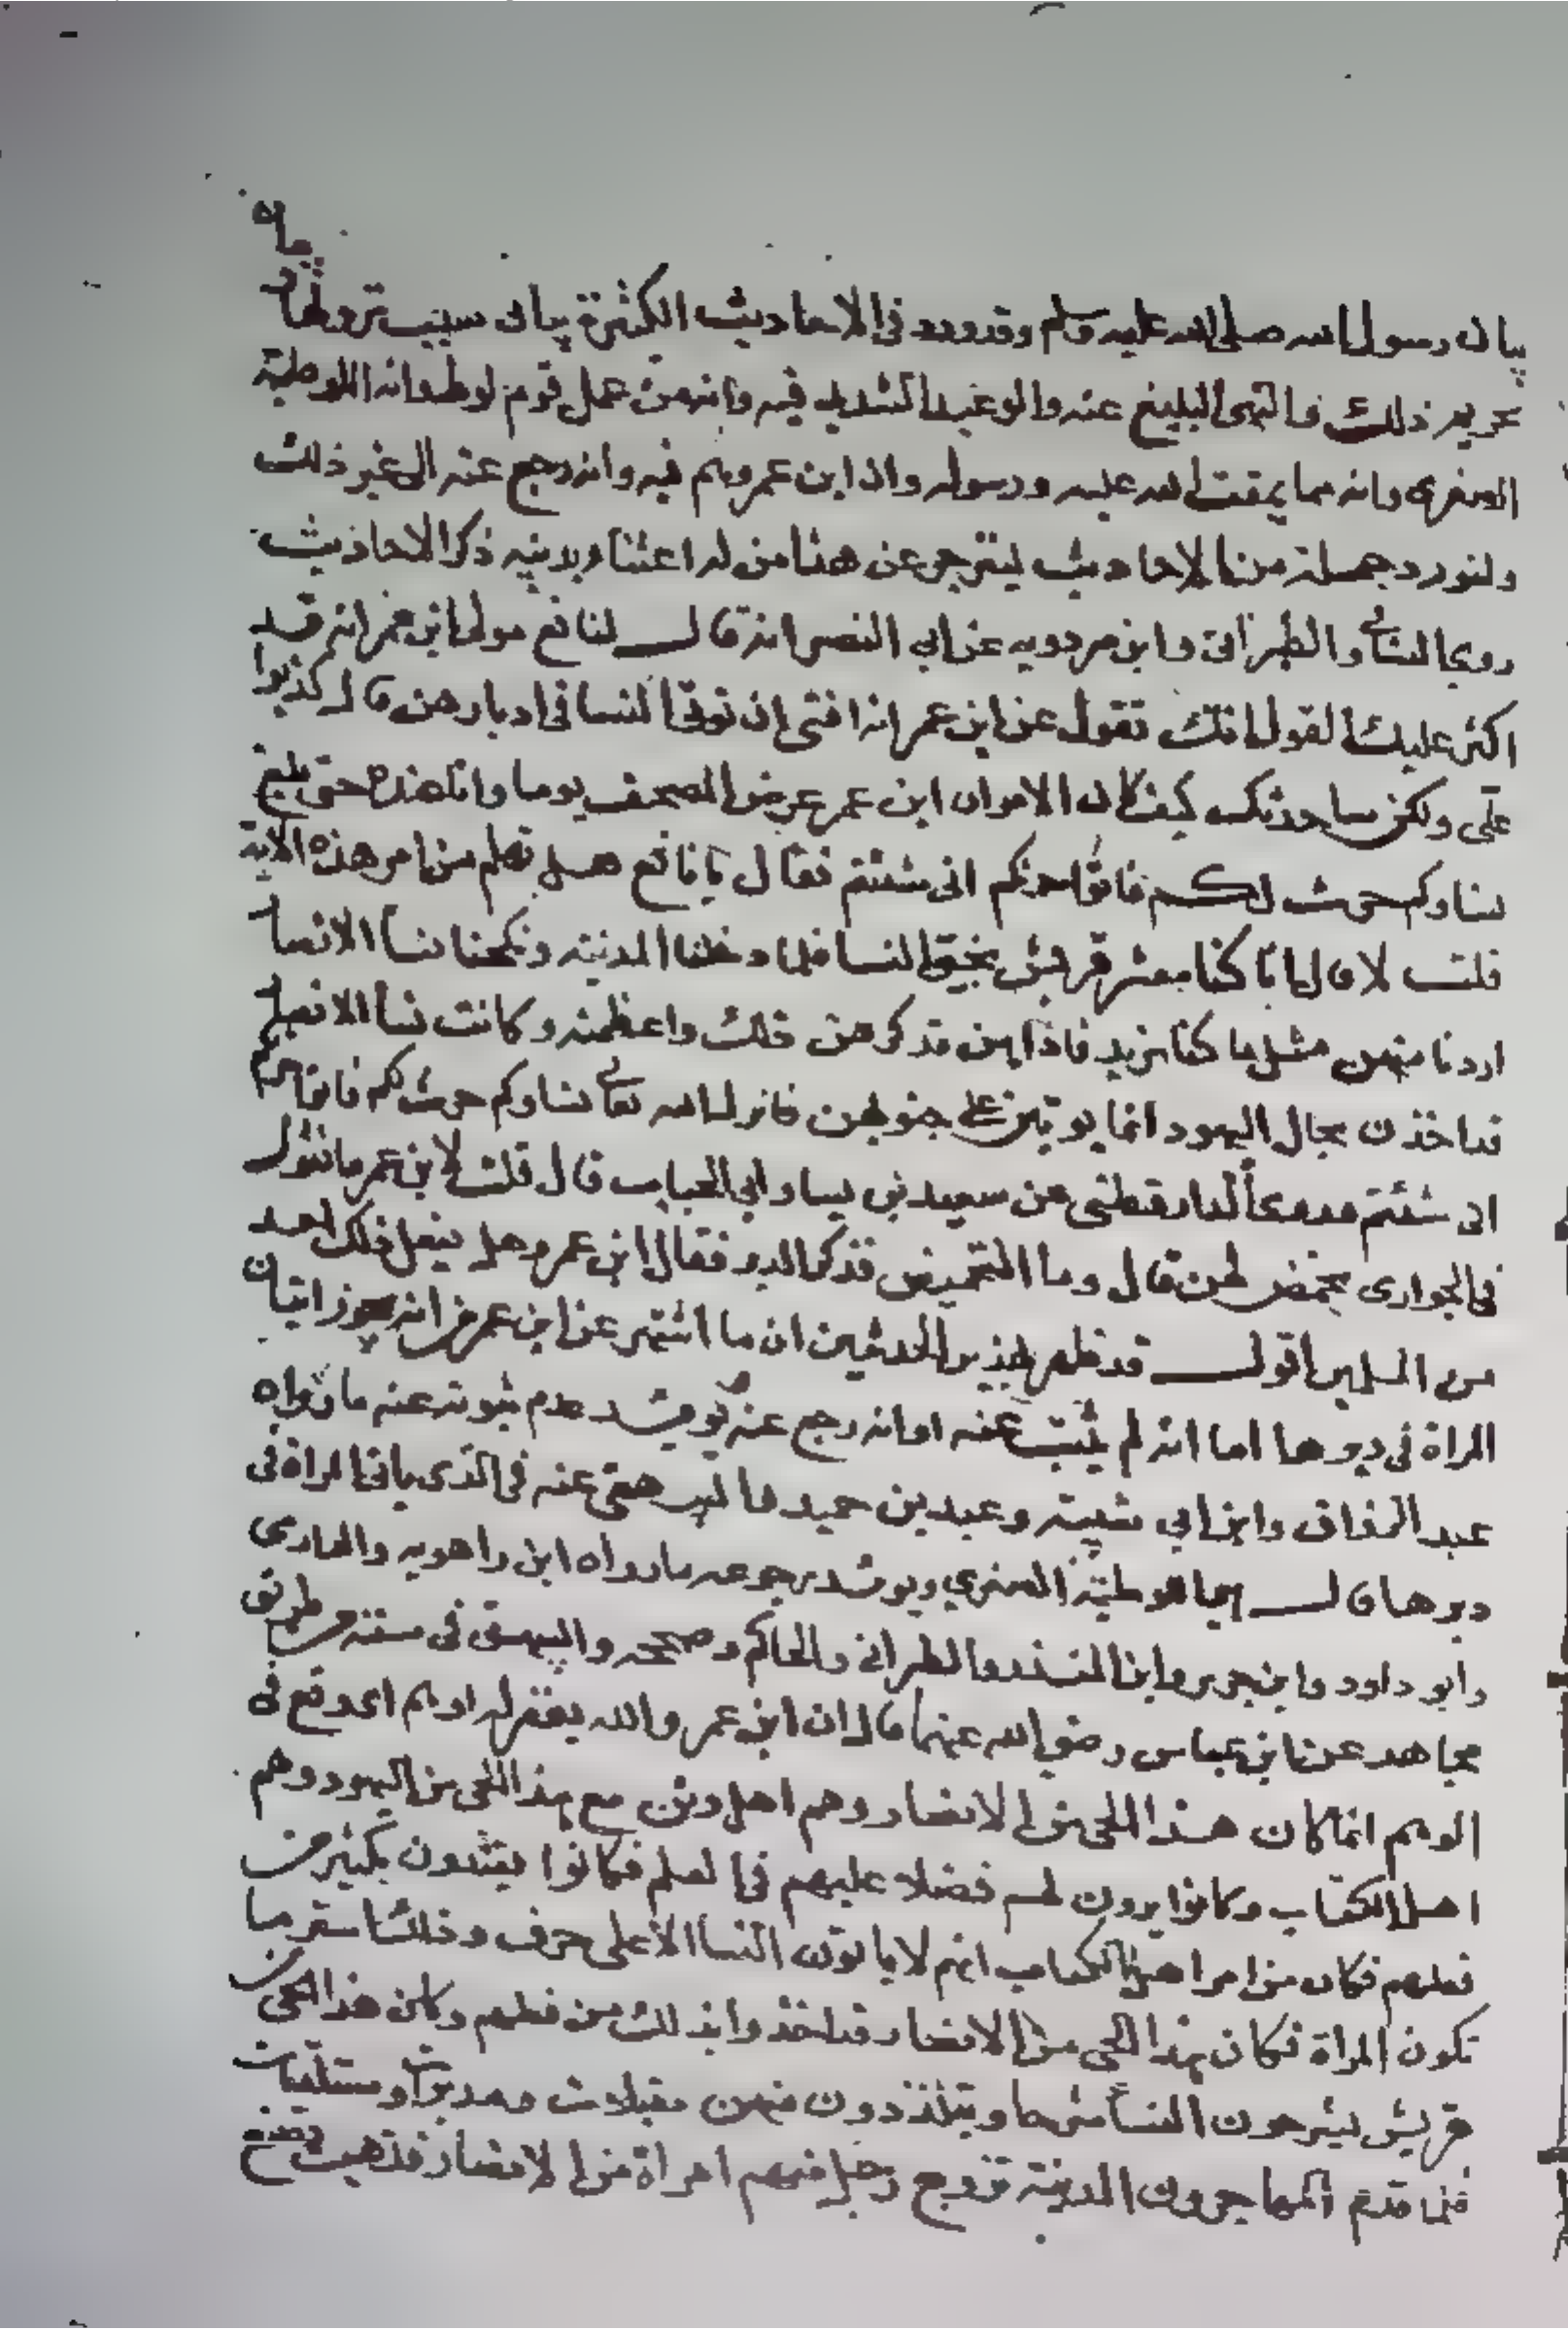 بيان رسول الله صلى الله عليه وسلم وقد ورد في الاحاديث الكثيرة بيان سبب نزولها
تحريم ذلك والنهى البليغ عنه والوعيد الشديد فيه وانه من عمل قوم لوط وانه اللوطية
الصغرى وانه مما يمقت الله عليه ورسوله وان ابن عمر وهم فيه وانه رجع عنه الى غير ذلك
ولنورد جملة من الاحاديث لينزجر عن هذا من له اعتناء بدينه ذكر الاحاديث
روى النسائي والطبراني وابن مردويه عن ابي النصر انه قال لنافع مولى ابن عمر انه قد
اكثر عليك القول انك تقول عن ابن عمر انه افتى ان توتى النسا في ادبارهن قال كذبوا
على ولكن ساحدثك كيف كان الامر ان ابن عمر عرض المصحف يوما وانا عنده حتى بلغ
نساوكم حرث لكم فاتوا حرثكم انى شئتم فقال يا نافع هل تعلم من امر هذه الاية
قلت لا قال انا كنا معشر قريش نجبي النسا فلما دخلنا المدينة ونكحنا نسا الانصار
اردنا منهن مثل ما كنا نريد فاذا هن قد كرهن ذلك واعظمنه وكانت نسا الانصار
قد اخذن بحال اليهود انما يوتين على جنوبهن فانزل الله تعالى نساوكم حرث لكم فاتوا حرثكم
انى شئتم وروى الدارقطنى عن سعيد بن يسار ابي الحباب قال قلت لابن عمر ما تقول
في الجواري نحمض لهن قال وما التحميض فذكر الدبر فقال ابن عمر وهل يفعل ذلك احد
من المسلمين اقول قد ظهر بهذين الحديثين ان ما اشتهر عن ابن عمر من انه يجوز اتيان
المراة في دبرها اما انه لم يثبت عنه او انه رجع عنه ويرشد عدم ثبوته عنه ما رواه
عبد الرزاق وابن ابي شيبة وعبد بن حميد والبيهقى عنه في الذى ياتى المراة في
دبرها قال هي اللوطية الصغرى ويرشد رجوعه ما رواه ابن راهويه والدارمى
وابو داود وابن جرير وابن المنذر والطبراني والحاكم وصححه والبيهقى في سننه من طريق
مجاهد عن ابن عباس رضى الله عنهما قال ان ابن عمر والله يغفر له اوهم اى وقع في
الوهم انما كان هذا الحى من الانصار وهم اهل وثن مع هذا الحى من اليهود وهم
اهل الكتاب وكانوا يرون لهم فضلا عليهم في العلم فكانوا يقتدون بكثير من
فعلهم فكان من امر اهل الكتاب انهم لا ياتون النسا الا على حرف وذلك استر ما
تكون المراة فكان هذا الحى من الانصار قد اخذوا بذلك من فعلهم وكان هذا الحى من
قريش يشرحون النسا شرحا ويتلذذون منهن مقبلات ومدبرات ومستلقيات
فلما قدم المهاجرون المدينة تزوج رجل منهم امراة من الانصار فذهب يصنع